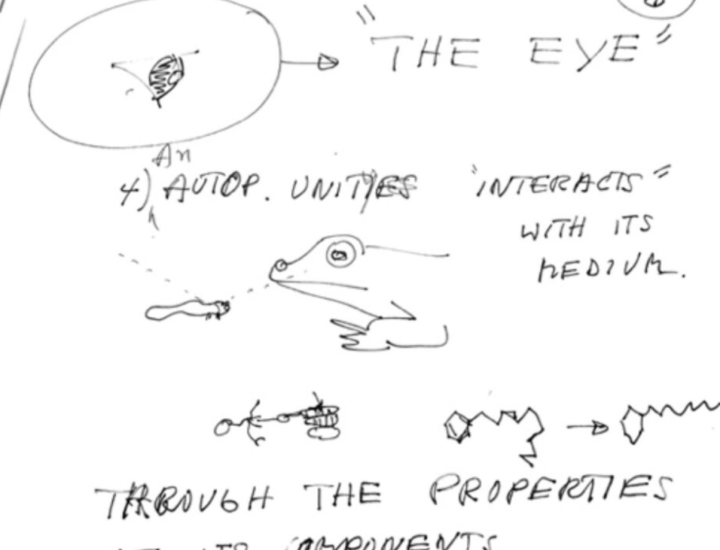 "THE EYE"
An
4) AUTOP. UNITIES "INTERACTS"
WITH ITS
MEDIUM.
THROUGH THE PROPERTIES
OF ITS COMPONENTS